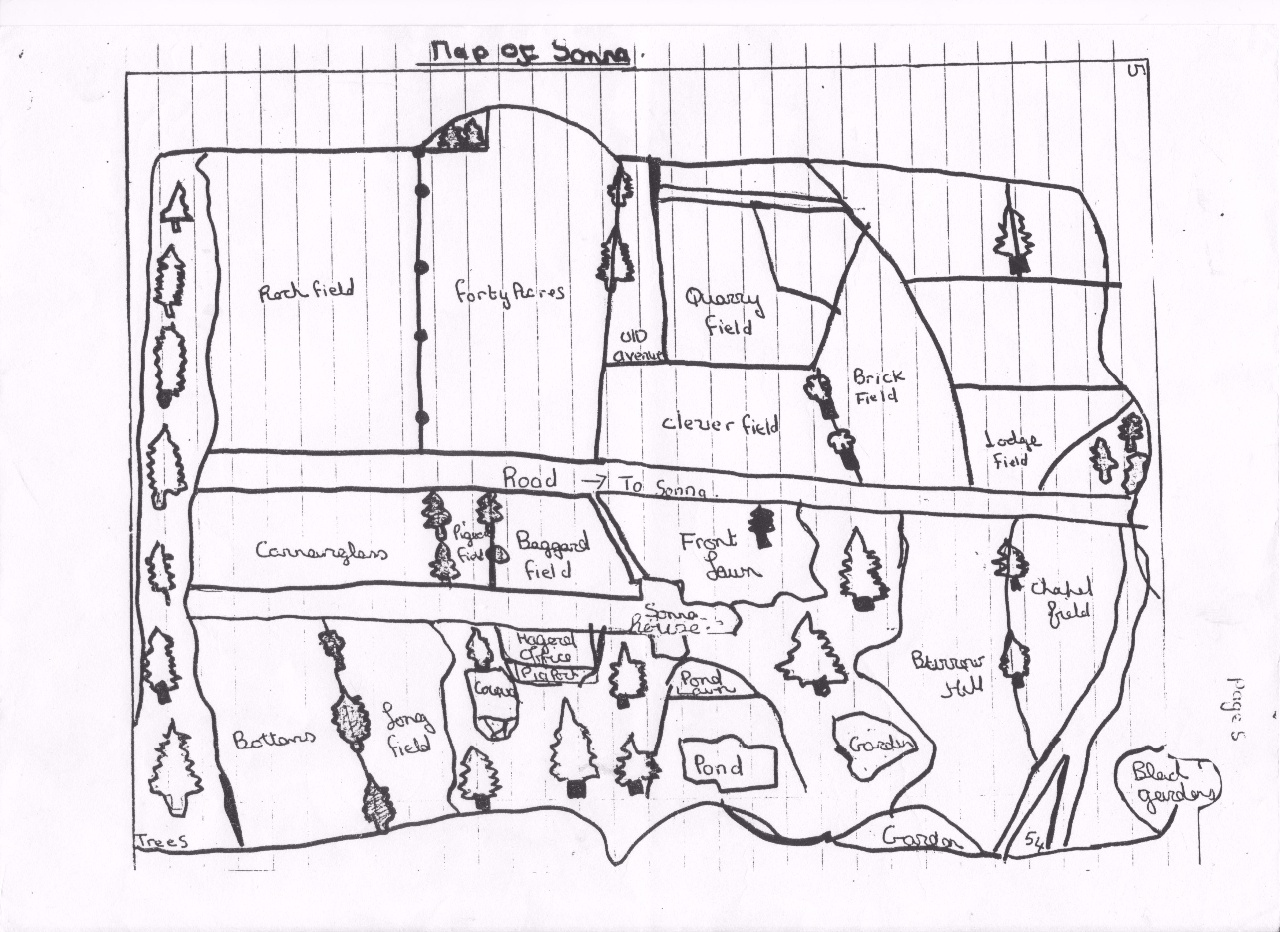 Map of Sonna.
5
Rock field
forty Acres
Quarry
field
old
avenue
Brick
Field
clever field
Lodge
field
Road → To Sonna.
Pigeon
field
Beggard
field
Front
Lawn
Chapel
field
Sonna
house
Hagerd
Office
Burrow
Hill
Pond
Lawn
Bottoms
Long
field
Garden
Pond
page 5
Garden
54
Trees
gardens